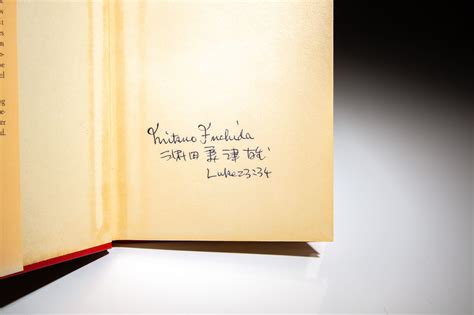 Mitsuo Fuchida
淵田美津雄
Luke 23:34